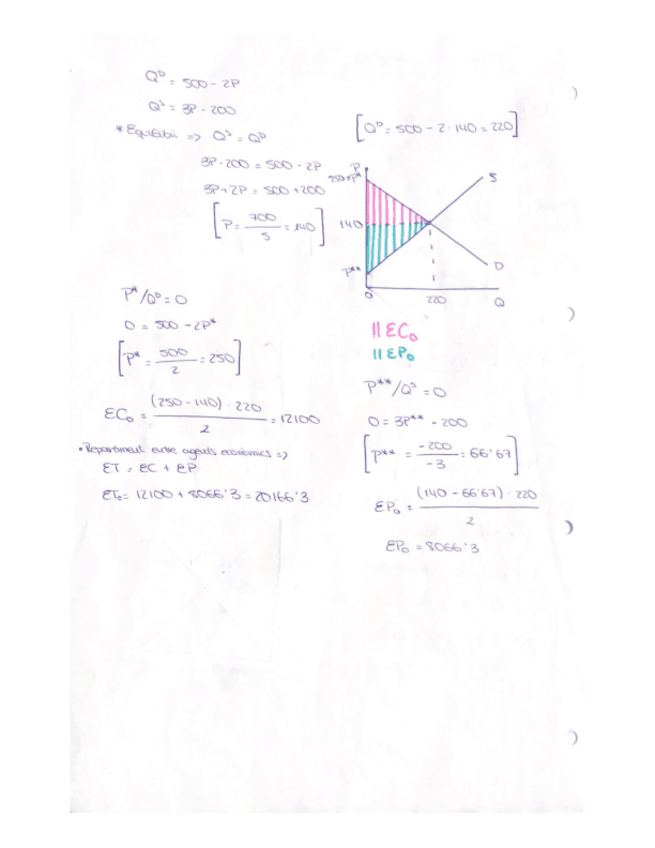 Qᴰ = 500 - 2P
Qˢ = 3P - 200
* Equilibri => Qˢ = Qᴰ
3P - 200 = 500 - 2P
3P + 2P = 500 + 200
[P = 700/5 = 140]
[Qᴰ = 500 - 2 · 140 = 220]
P
250 = P*
S
140
D
P**
0
220
Q
|| EC₀
|| EP₀
P* / Qᴰ = 0
0 = 500 - 2P*
[P* = 500/2 = 250]
EC₀ = (250 - 140) · 220 / 2 = 12100
• Repartiment entre agents econòmics =>
ET = EC + EP
ET₀ = 12100 + 8066'3 = 20166'3
P** / Qˢ = 0
0 = 3P** - 200
[P** = -200/-3 = 66'67]
EP₀ = (140 - 66'67) · 220 / 2
EP₀ = 8066'3